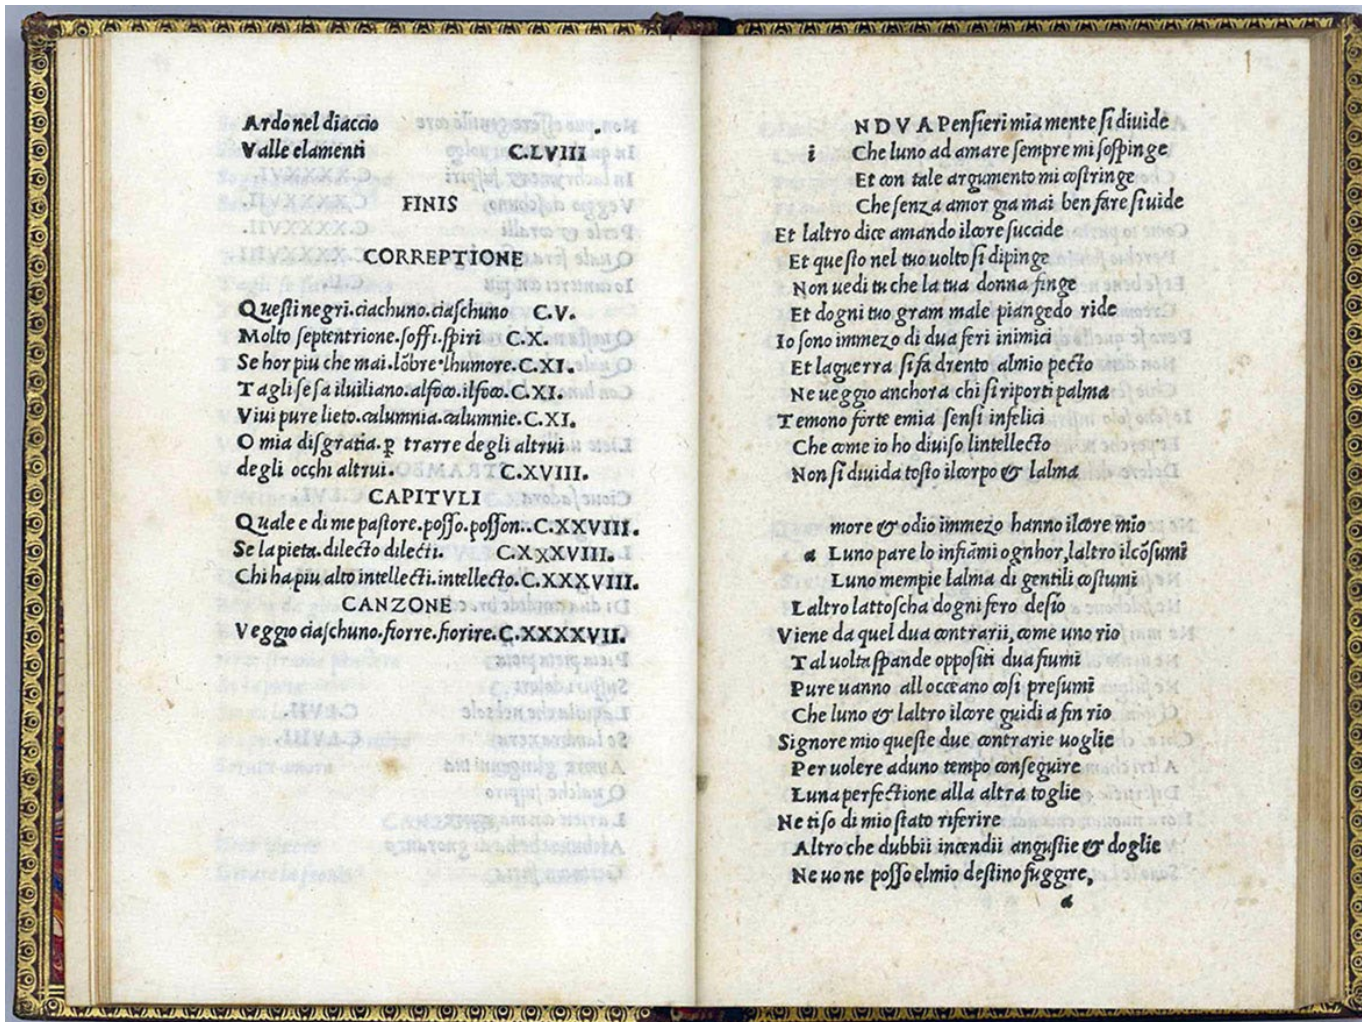 Ardo nel diaccio
Valle elamenti C.LVIII
FINIS
CORREPTIONE
Queſti negri.ciachuno.ciaſchuno C.V.
Molto ſeptentrione.ſoffi.ſpiri C.X.
Se hor piu che mai.lõbre.lhumore.C.XI.
Tagli ſe ſa iluiliano.alfoco.ilfoco.C.XI.
Viui pure lieto.calumnia.calumnie.C.XI.
O mia diſgratia.ꝑ trarre degli altrui
degli occhi altrui. C.XVIII.
CAPITVLI
Quale e di me paſtore.poſſo.poſſon..C.XXVIII.
Se la pieta.dilecto dilecti. C.XXXVIII.
Chi ha piu alto intellecti.intellecto.C.XXXVIII.
CANZONE
Veggio ciaſchuno.fiorre.fiorire.C.XXXXVII.
1
NDVA Penſieri mia mente ſi diuide
i Che luno ad amare ſempre mi ſoſpinge
Et con tale argumento mi coſtringe
Che ſenza amor gia mai ben fare ſi uide
Et laltro dice amando ilcore ſuccide
Et queſto nel tuo uolto ſi dipinge
Non uedi tu che la tua donna finge
Et dogni tuo gram male piangedo ride
Io ſono immezo di dua feri inimici
Et laguerra ſi fa drento almio pecto
Ne ueggio anchora chi ſi riporti palma
Temono forte emia ſenſi infelici
Che come io ho diuiſo lintellecto
Non ſi diuida toſto ilcorpo & lalma
more & odio immezo hanno ilcore mio
a Luno pare lo infiãmi ognhor,laltro ilcõſumi
Luno mempie lalma di gentili coſtumi
Laltro lattoſcha dogni fero deſio
Viene da quel dua contrarii, come uno rio
Tal uolta ſpande oppoſiti dua fiumi
Pure uanno all occeano coſi preſumi
Che luno & laltro ilcore guidi a fin rio
Signore mio queſte due contrarie uoglie
Per uolere aduno tempo conſeguire
Luna perfectione alla altra toglie
Ne ti ſo di mio ſtato riferire
Altro che dubbii incendii anguſtie & doglie
Ne uo ne poſſo elmio deſtino fuggire,
a